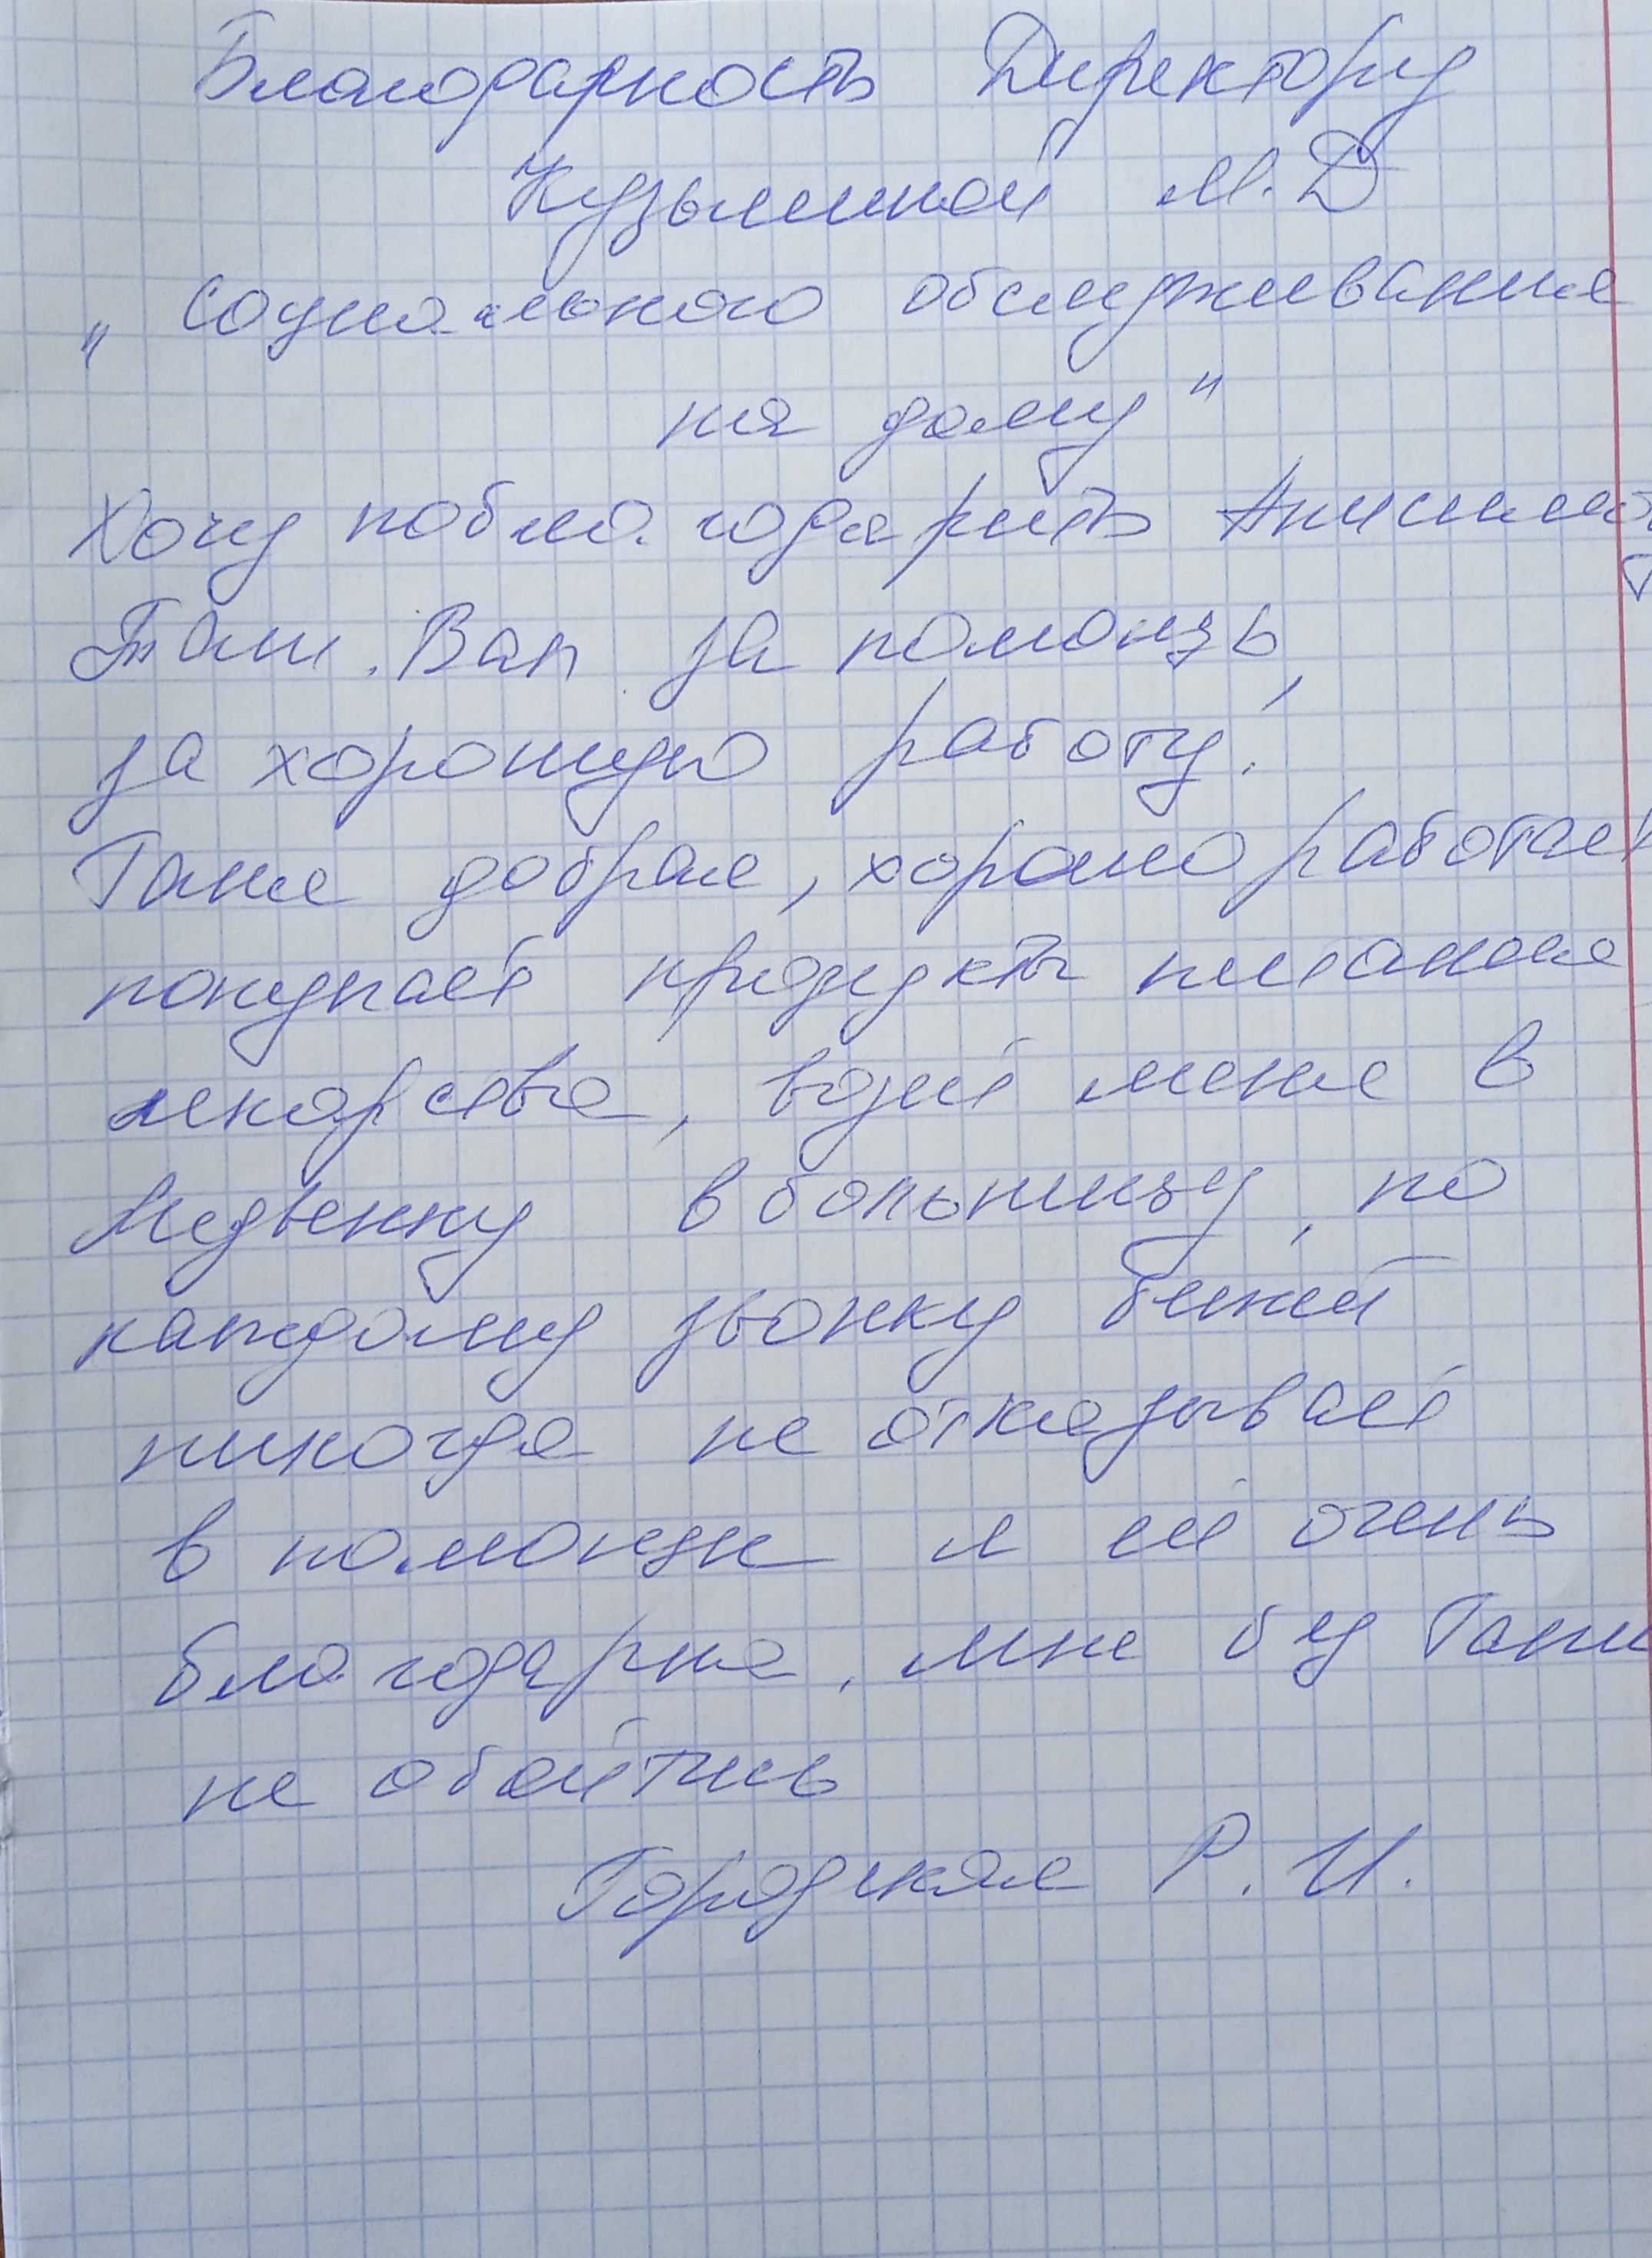 Благодарность Директору
Кузьминой М.Д
„ Социального обслуживания
на дому "
Хочу поблагодарить Анисимову
Тан. Вал за помощь,
за хорошую работу.
Таня добрая, хорошо работает
покупает продукты питания
лекарства, возит меня в
в больницу, по
каждому звонку бежит
никогда не отказывает
в помощи я ей очень
благодарна, мне без Тани
не обойтись
Городская Р. И.